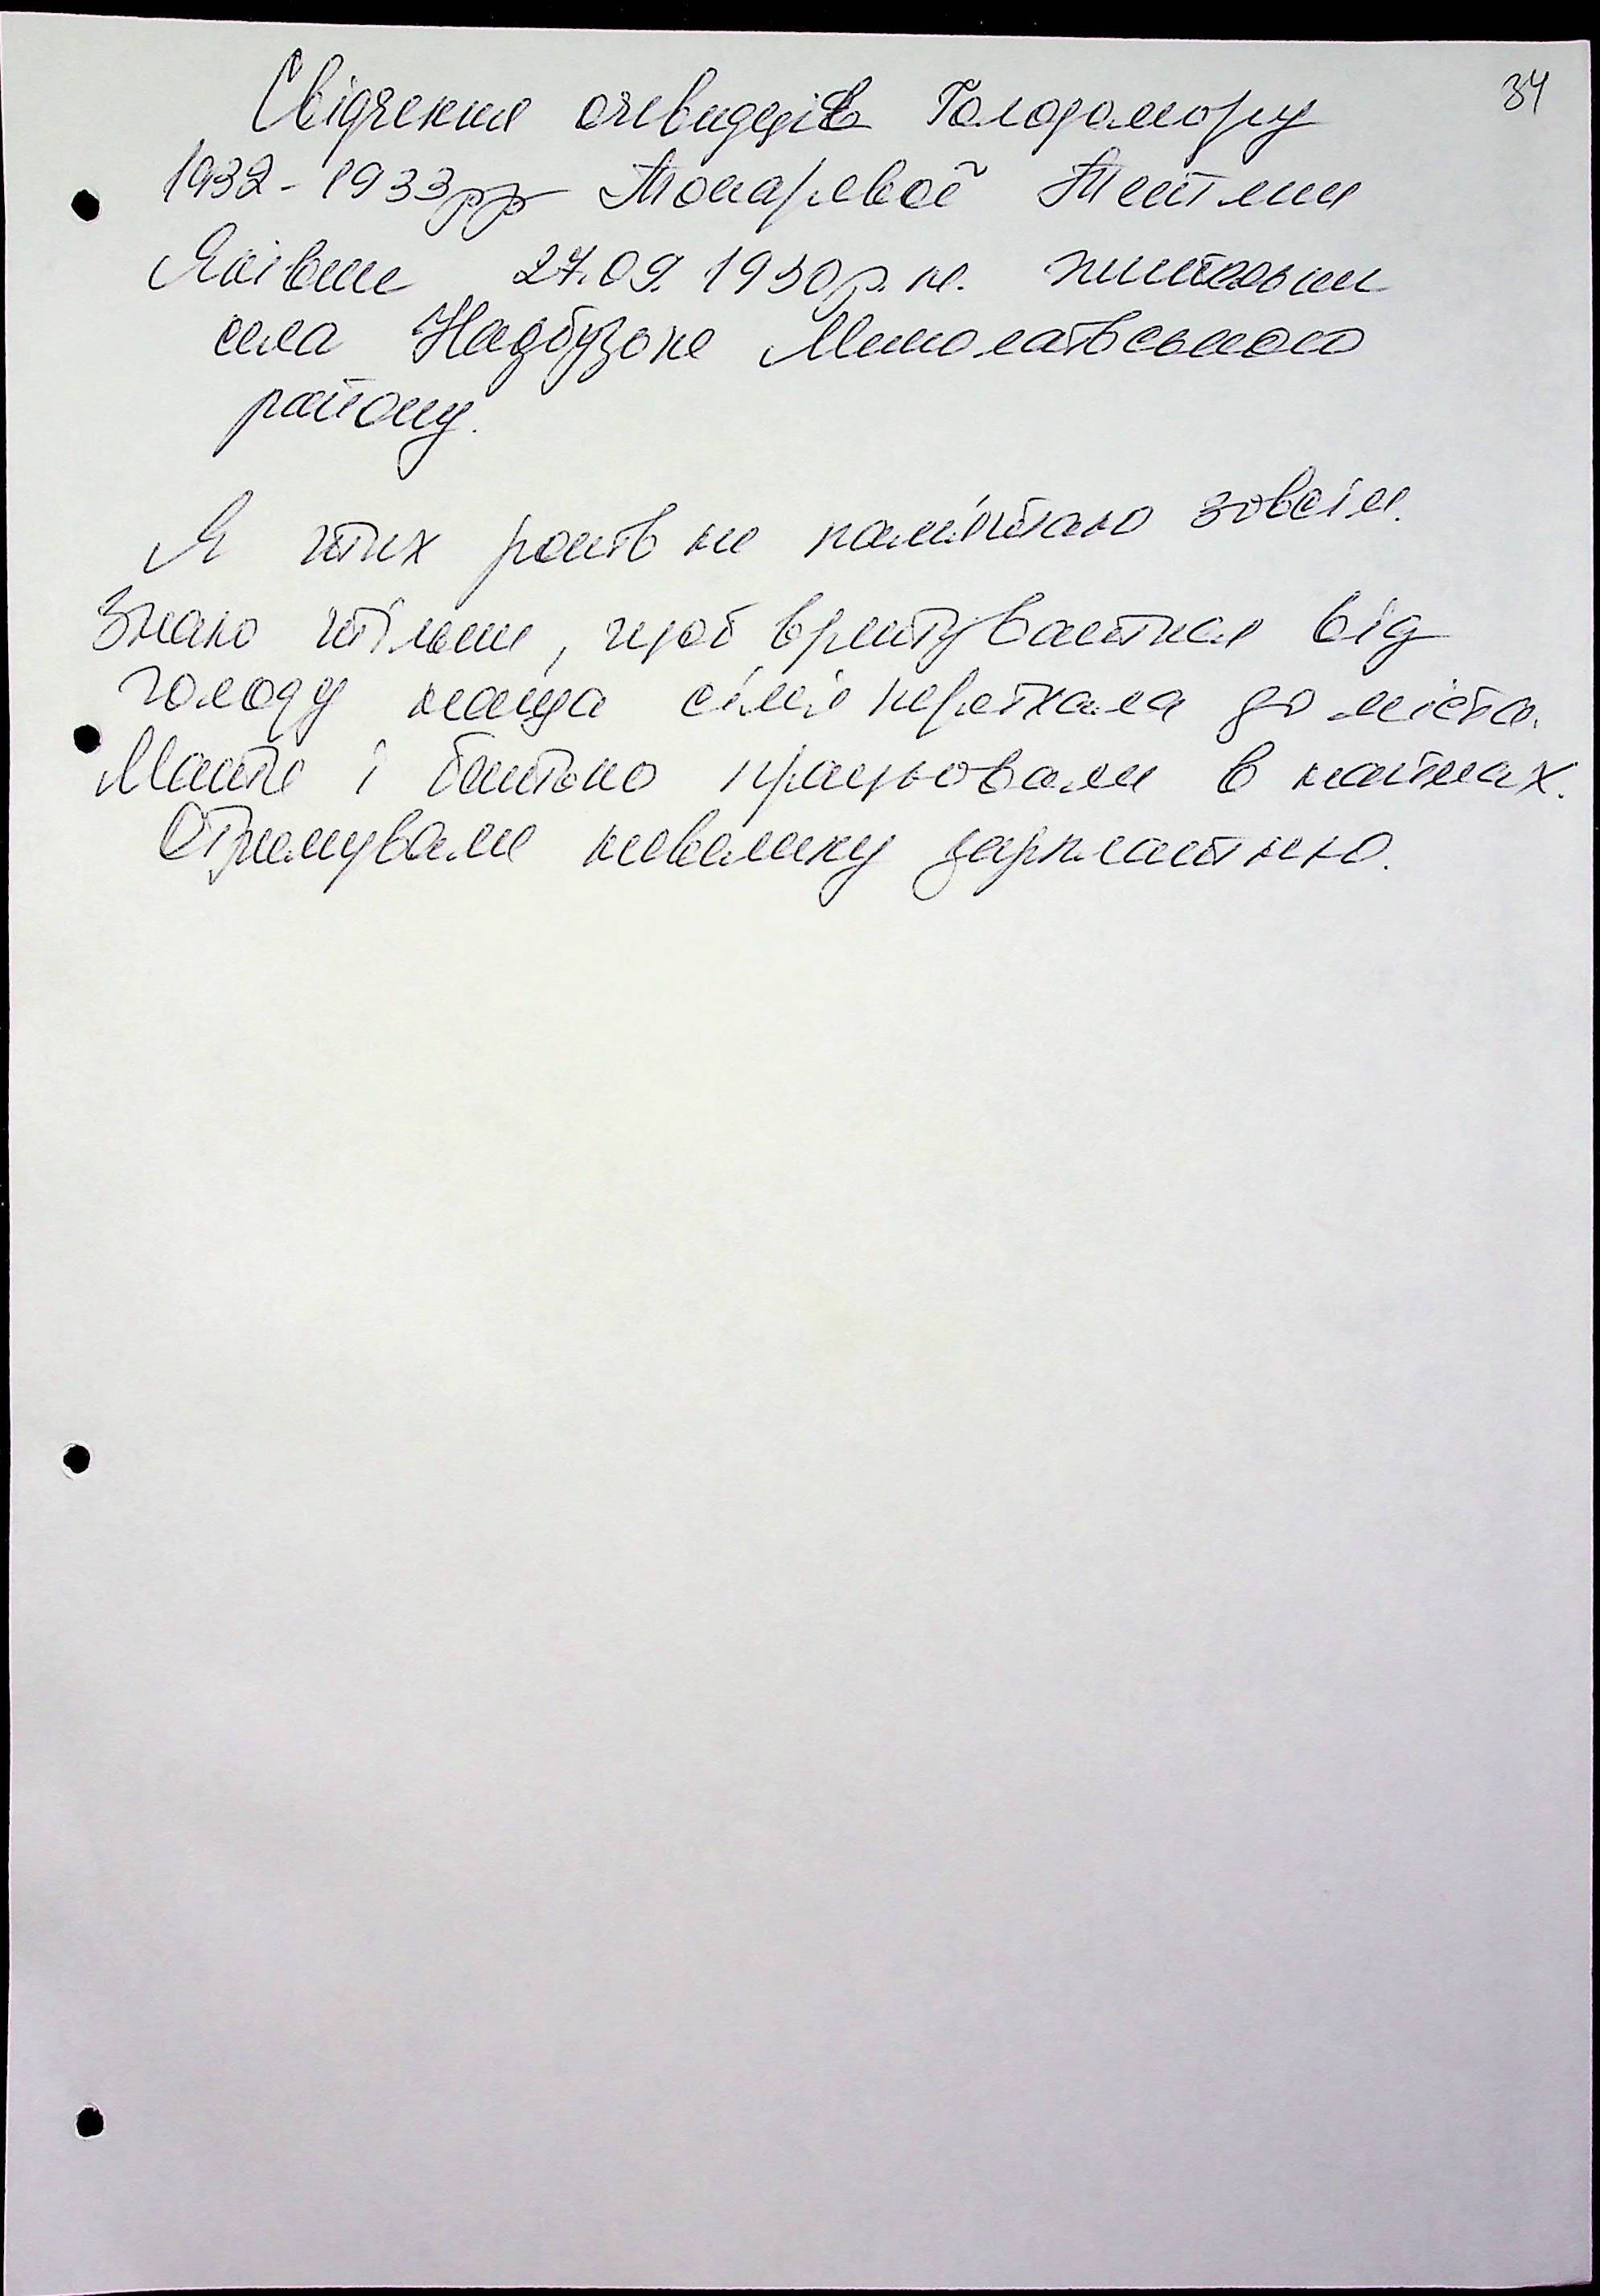 34
Свідчення очевидців Голодомору
1932-1933рр Токаревої Тетяни
Яківни 27.09.1930р.н. жительки
села Надбузьке Миколаївського
району.
Я тих років не пам'ятаю зовсім.
Знаю тільки, щоб врятуватися від
голоду наша сім'я переїхала до міста.
Мати і батько працювали в наймах.
Отримували невелику зарплатню.